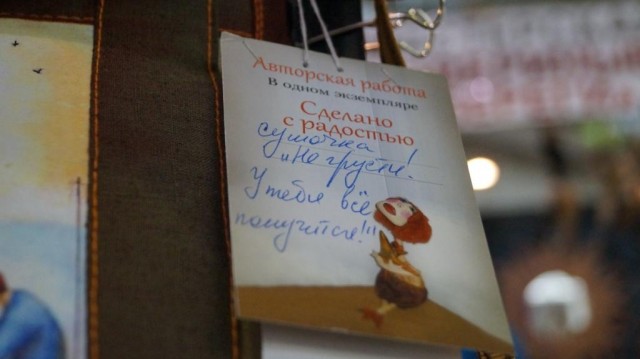 Авторская работа
В одном экземпляре
Сделано
с радостью
сумочка
"Не грусти!
У тебя всё
получится!!!"